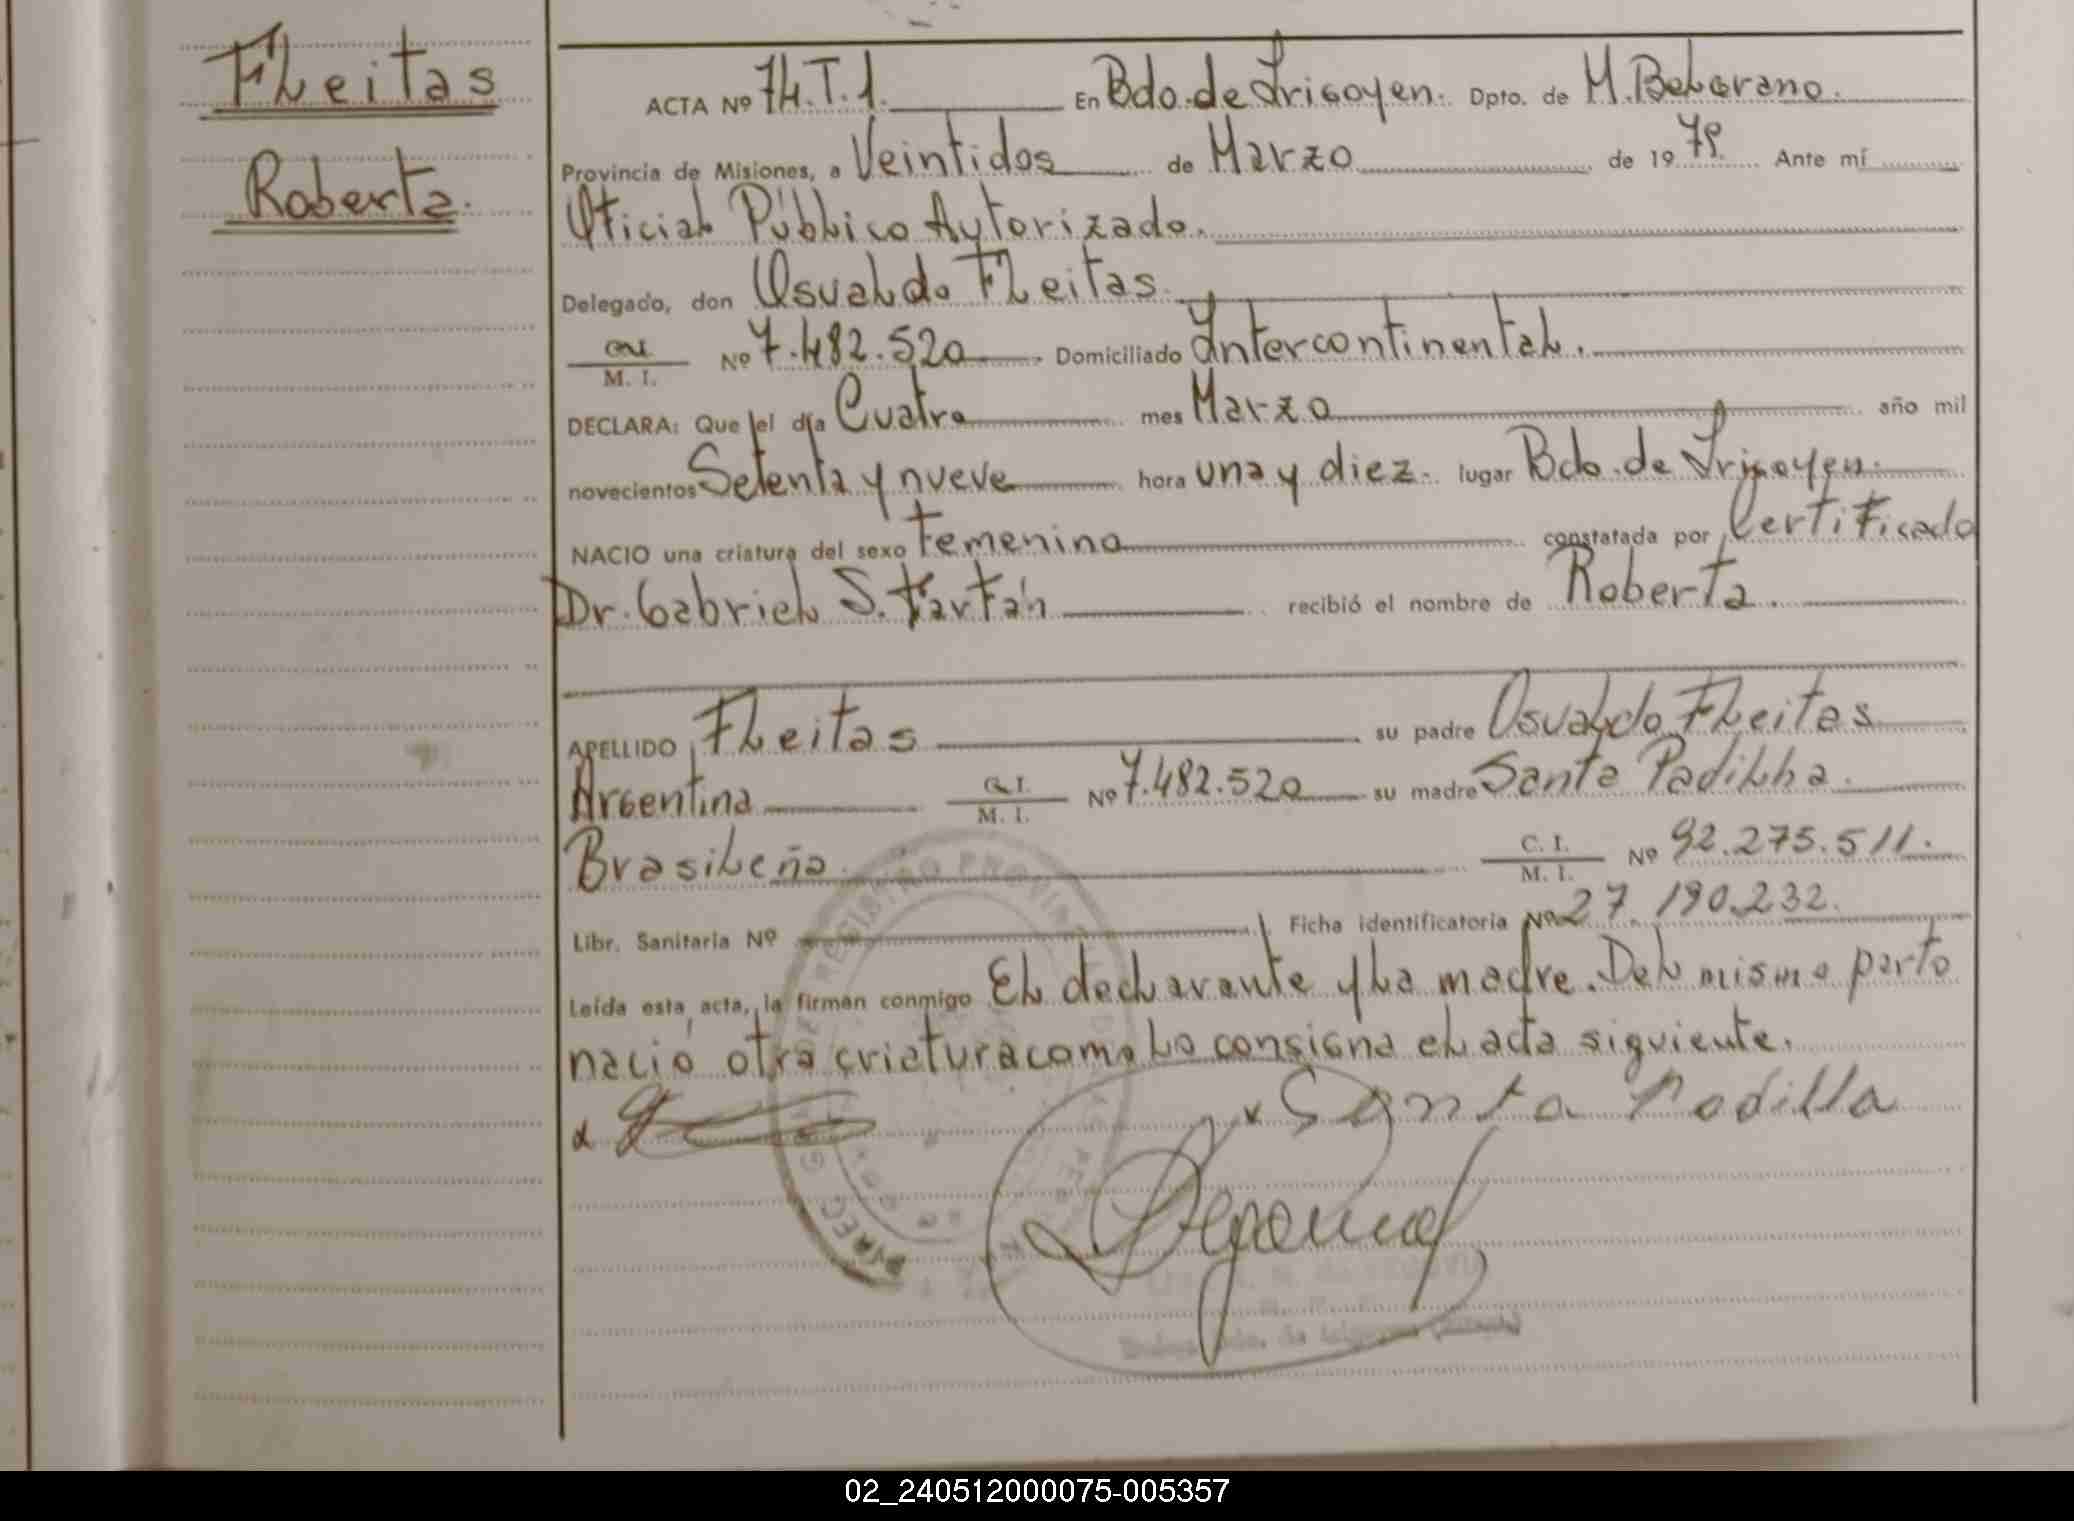 Fleitas
Roberta.
ACTA Nº 74.T.1. En Bdo. de Irigoyen. Dpto. de M. Belgrano.
Provincia de Misiones, a Veintidos de Marzo de 19 79. Ante mí
Oficial Público Autorizado.
Delegado, don Osvaldo Fleitas.
M. I. Nº 7.482.520 Domiciliado Intercontinental.
DECLARA: Que el día Cuatro mes Marzo año mil
novecientos Setenta y nueve hora una y diez. lugar Bdo. de Irigoyen.
NACIO una criatura del sexo femenino constatada por Certificado
Dr. Gabriel S. recibió el nombre de Roberta.
APELLIDO Fleitas su padre Osvaldo Fleitas
Argentina C. I. M. I. Nº 7.482.520 su madre Santa Padilha.
Brasileña. C. I. M. I. Nº 92.275.511.
Libr. Sanitaria Nº Ficha identificatoria Nº 27.190.232.
Leída esta acta, la firman conmigo El declarante y la madre. Del mismo parto
nació otra criatura como lo consigna el acta siguiente.
x Santa Padilla
REGISTRO PROVINCIAL DE LAS PERSONAS
DIREC
02_240512000075-005357